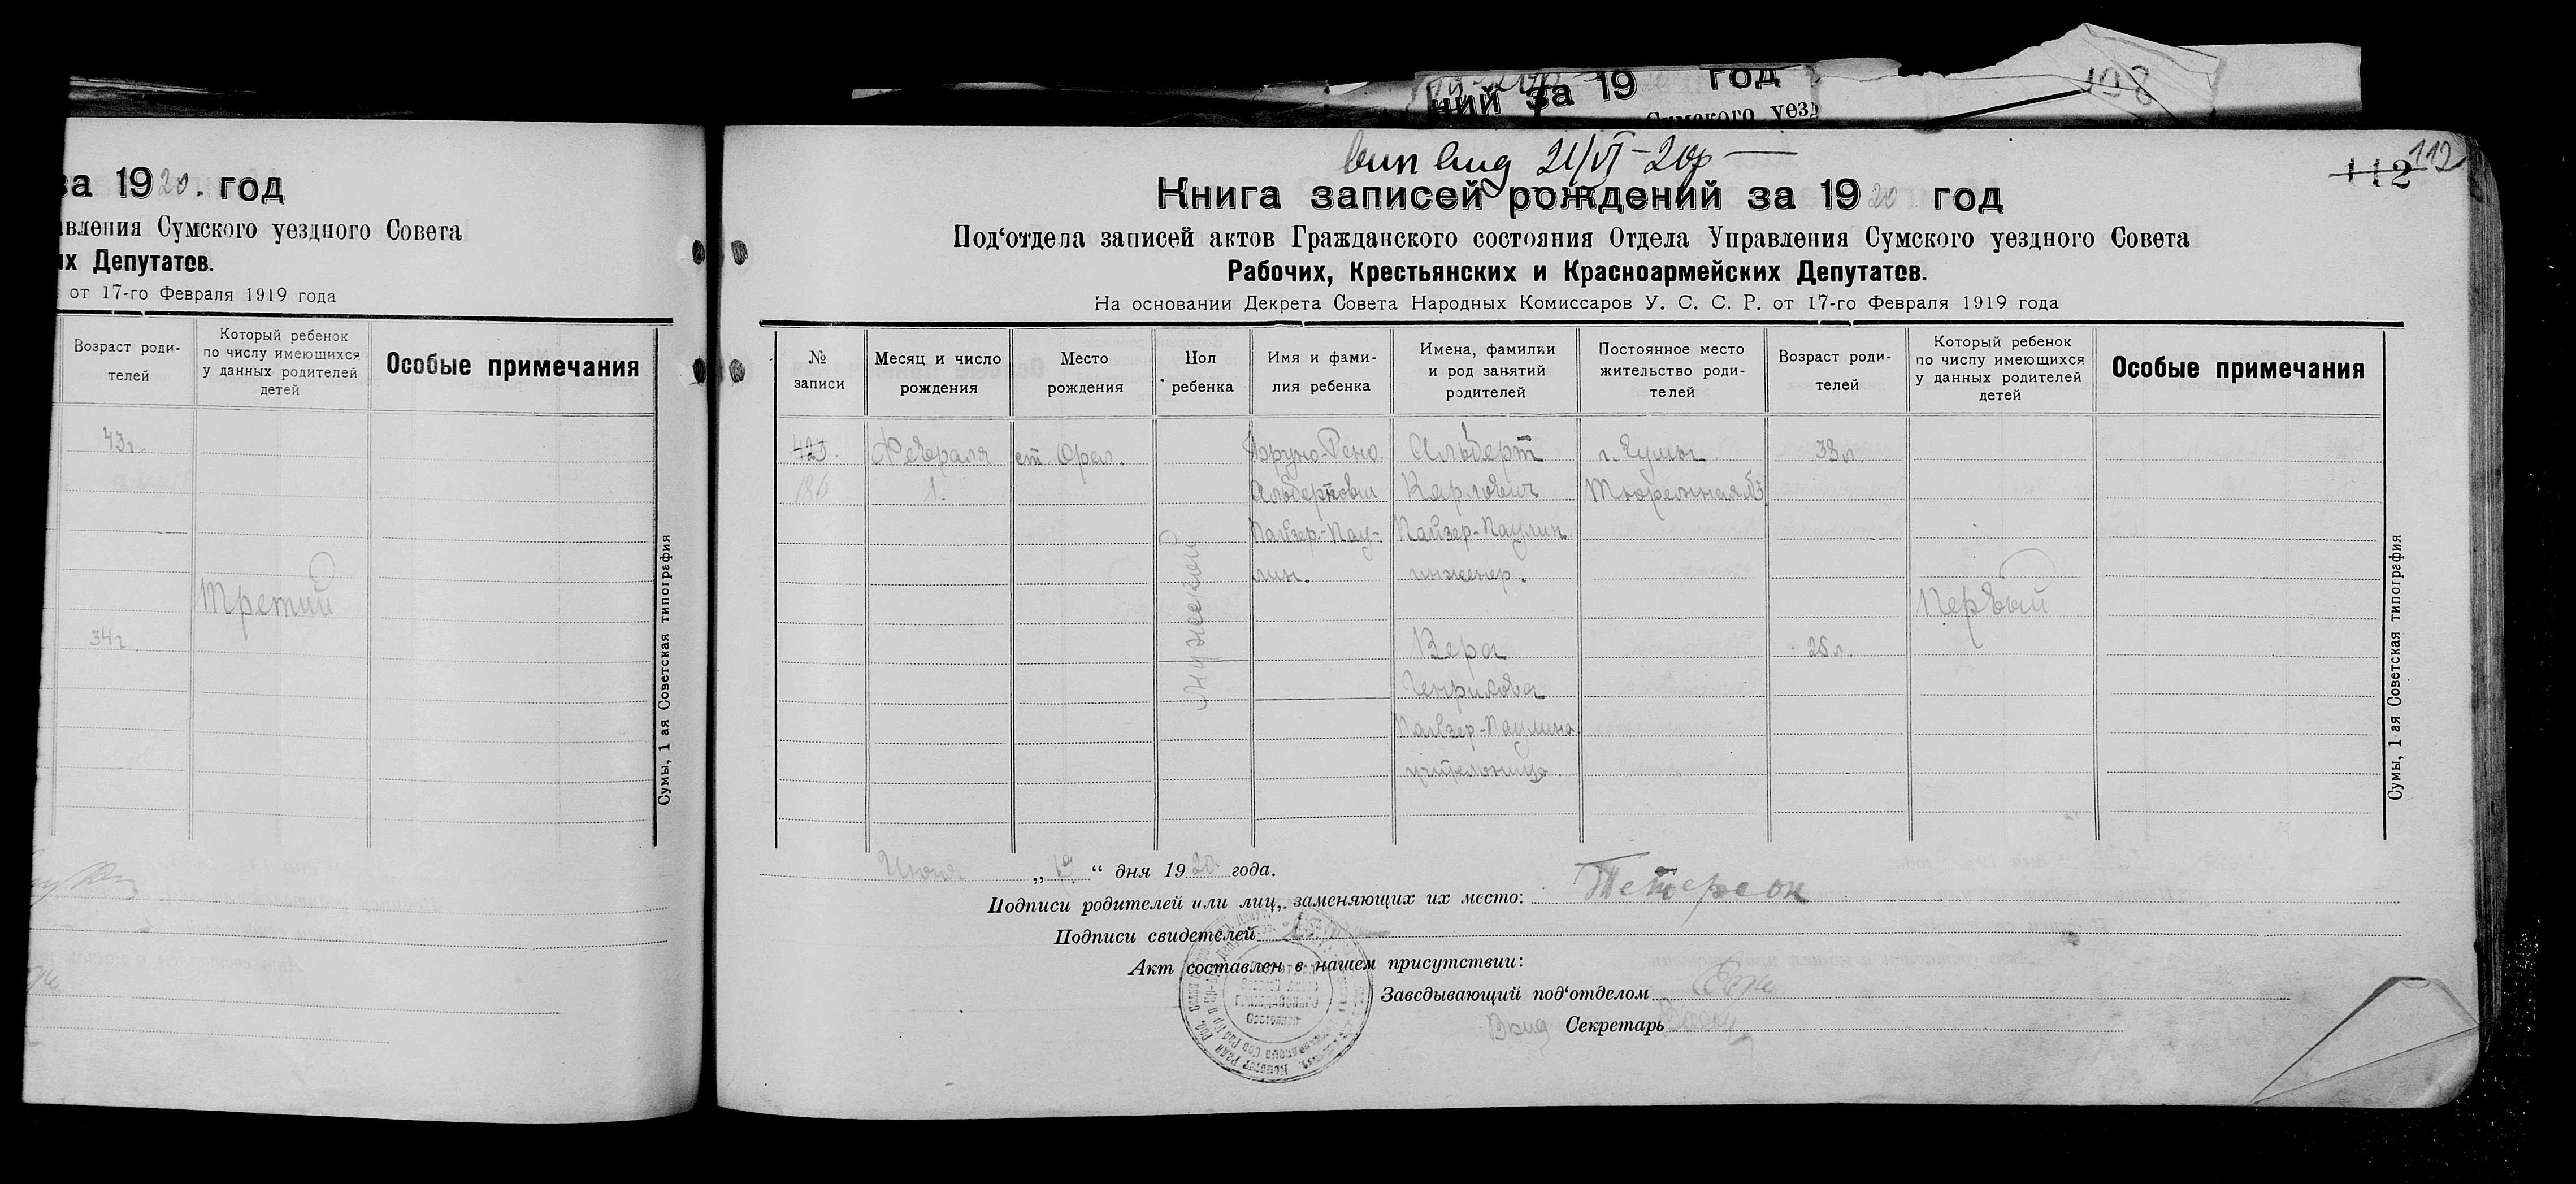 198
ний за 19 год
Сумского уезд
за 1920. год
авления Сумского уездного Совета
их Депутатов.
от 17-го Февраля 1919 года
Возраст роди-
телей
Который ребенок
по числу имеющихся
у данных родителей
детей
Особые примечания
43 г.
Третий
34 г.
Сумы, 1 ая Советская типография
21/VI-20 р
112
112
Книга записей рождений за 1920 год
Под‘отдела записей актов Гражданского состояния Отдела Управления Сумского уездного Совета
Рабочих, Крестьянских и Красноармейских Депутатов.
На основании Декрета Совета Народных Комиссаров У. С. С. Р. от 17-го Февраля 1919 года
№
записи
Месяц и число
рождения
Место
рождения
Пол
ребенка
Имя и фами-
лия ребенка
Имена, фамилии
и род занятий
родителей
Постоянное место
жительство роди-
телей
Возраст роди-
телей
Который ребенок
по числу имеющихся
у данных родителей
детей
Особые примечания
186
Февраля
1.
ст. Орел.
Мужеской
Бруно-Рено
Альбертович
Пайзер-Пау-
лин.
Альберт
Карлович
Пайзер-Паулин
инженер.
Вера
Генрихова
Пайзер-Паулина
учительница
г. Сумы
Тюремная
38 л.
Первый
Сумы, 1 ая Советская типография
Июня „ “ дня 1920 года.
Подписи родителей или лиц, заменяющих их место: Петерсон
Подписи свидетелей
Акт составлен в нашем присутствии:
Заведывающий под‘отделом
Секретарь